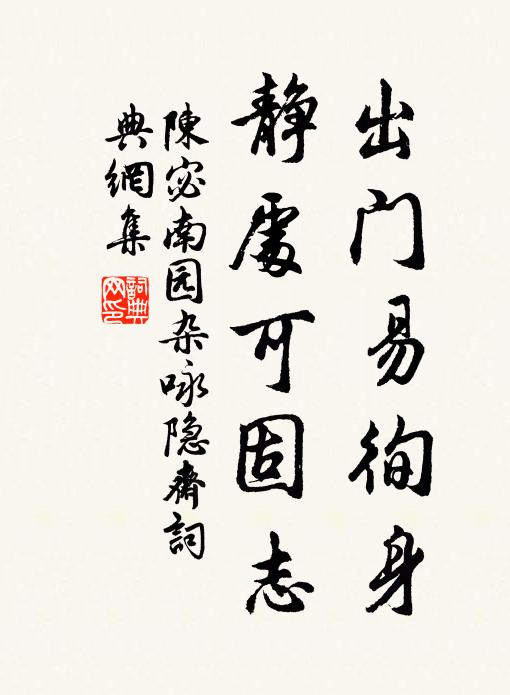 出门易徇身
静處可固志
陳宓南园杂咏隐齋詞
典網集
詞典
网印